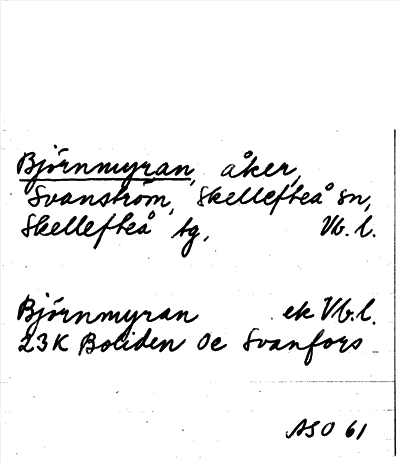 Björnmyran, åker,
Svanström, Skellefteå sn,
Skellefteå tg, Vb. l.
Björnmyran ek Vb. l.
23K Boliden 0c Svanfors
ASO 61